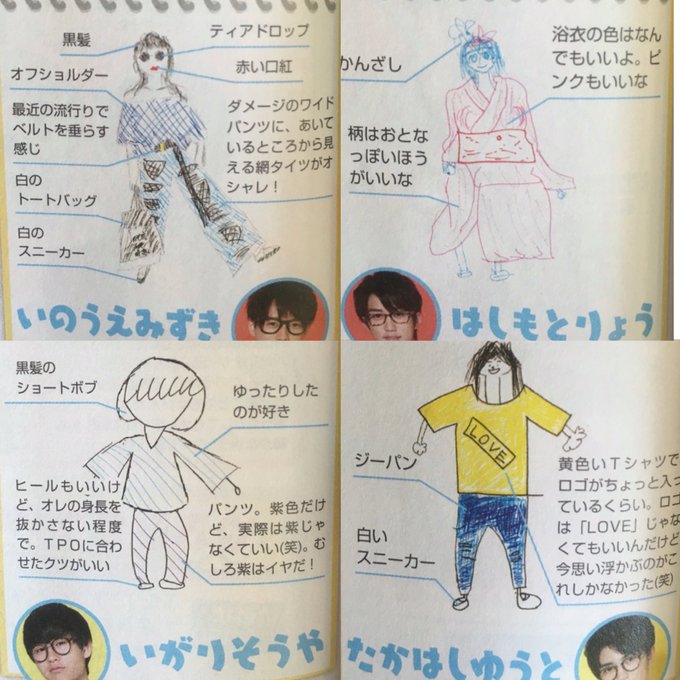 黒髪
ティアドロップ
オフショルダー
赤い口紅
最近の流行りで
ベルトを垂らす
感じ
ダメージのワイド
パンツに、あいて
いるところから見
える網タイツがオ
シャレ！
白の
トートバッグ
白の
スニーカー
いのうえみずき
かんざし
浴衣の色はなん
でもいいよ。ピ
ンクもいいな
柄はおとな
っぽいほう
がいいな
はしもとりょう
黒髪の
ショートボブ
ゆったりした
のが好き
ヒールもいいけ
ど、オレの身長を
抜かさない程度
で。TPOに合わ
せたクツがいい
パンツ。紫色だけ
ど、実際は紫じゃ
なくていい(笑)。む
しろ紫はイヤだ！
いがりそうや
LOVE
ジーパン
白い
スニーカー
黄色いTシャツで
ロゴがちょっと入っ
ているくらい。ロゴ
は「LOVE」じゃな
くてもいいんだけど
今思い浮かぶのがこ
れしかなかった(笑)
たかはしゆうと